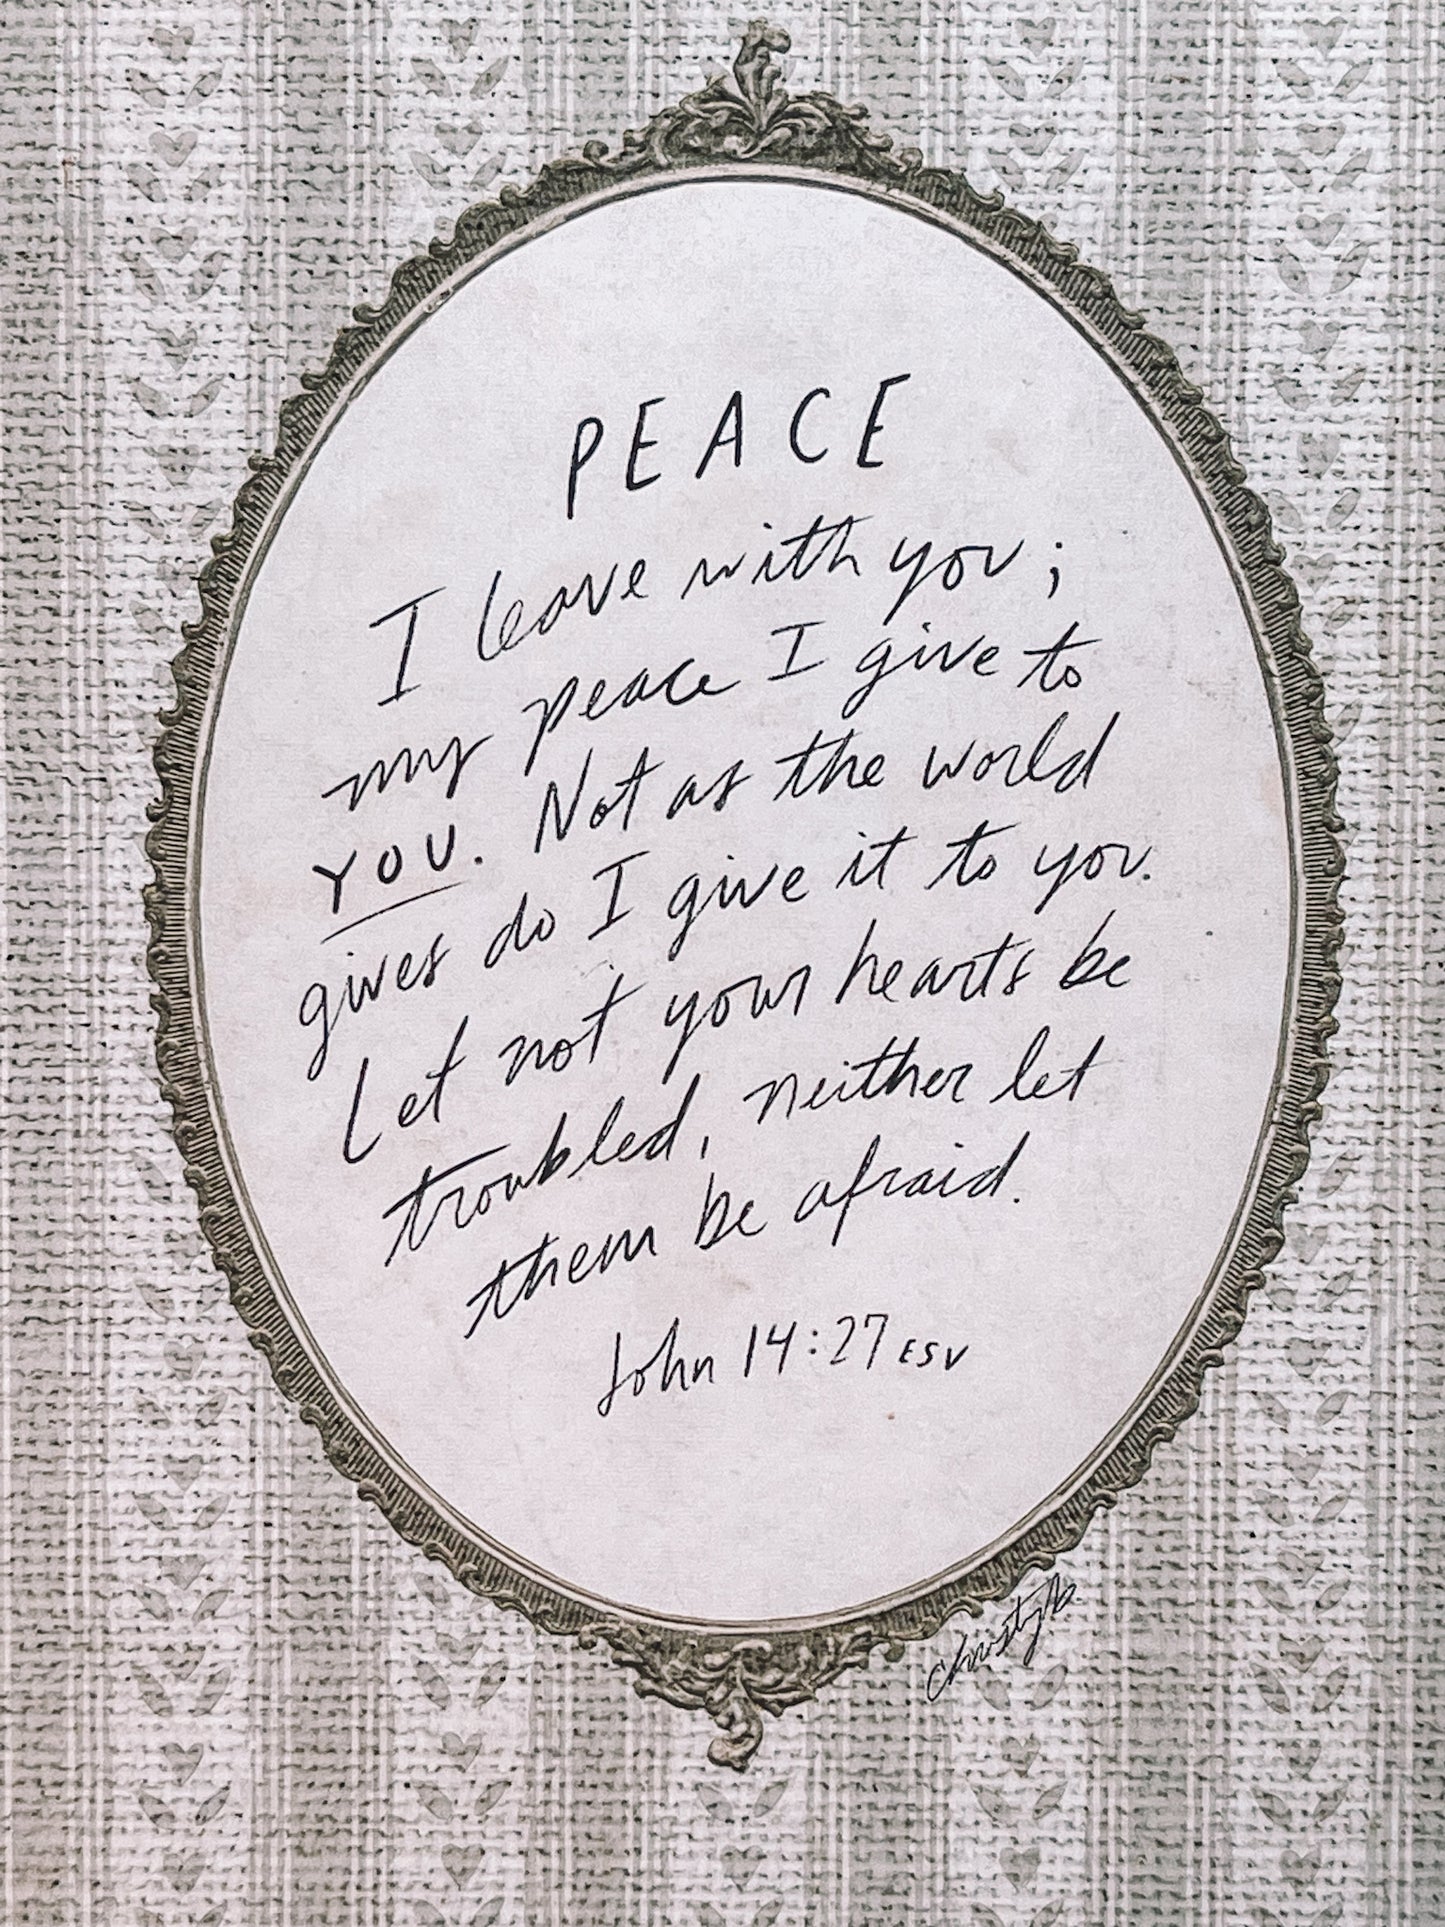 PEACE
I leave with you;
my peace I give to
YOU. Not as the world
gives do I give it to you.
Let not your hearts be
troubled, neither let
them be afraid.
John 14:27 ESV
Christy B.